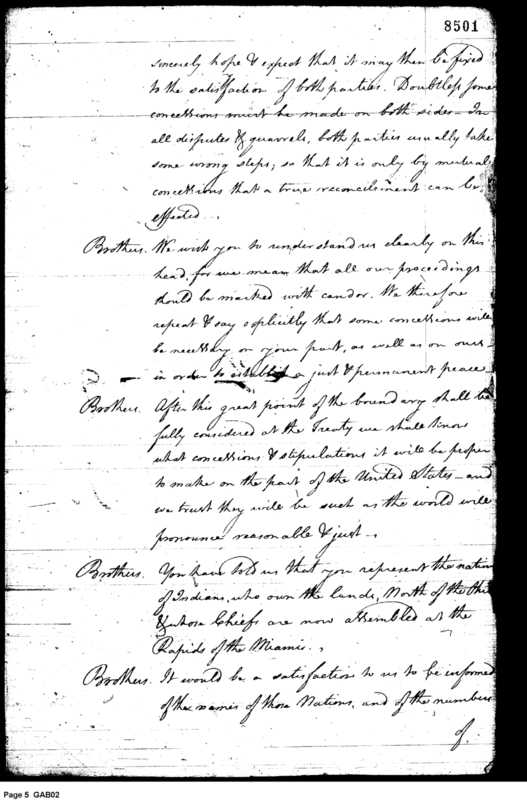 8501
sincerely hope & expect that it may then be fixed
to the satisfaction of both parties. Doubtless some
concessions must be made on both sides – In
all disputes & quarrels, both parties usually take
some wrong steps; so that it is only by mutual
concessions that a true reconcilement can be
effected.
Brothers. We wish you to understand us clearly on this
head, for we mean that all our proceedings
should be marked with candor. We therefore
repeat & say explicitly that some concessions will
be necessary on your part, as well as on ours –
in order to establish a just & permanent peace
Brothers. After this great point of the boundary shall be
fully considered at the Treaty we shall know
what concessions & stipulations it will be proper
to make on the part of the United States – and
we trust they will be such as the world will
pronounce reasonable & just –
Brothers. You have told us that you represent the nations
of Indians, who own the lands, North of the Ohio
& whose Chiefs are now assembled at the
Rapids of the Miamis.
Brothers. It would be a satisfaction to us to be informed
of the names of those Nations, and of the numbers
of.
Page 5 GAB02